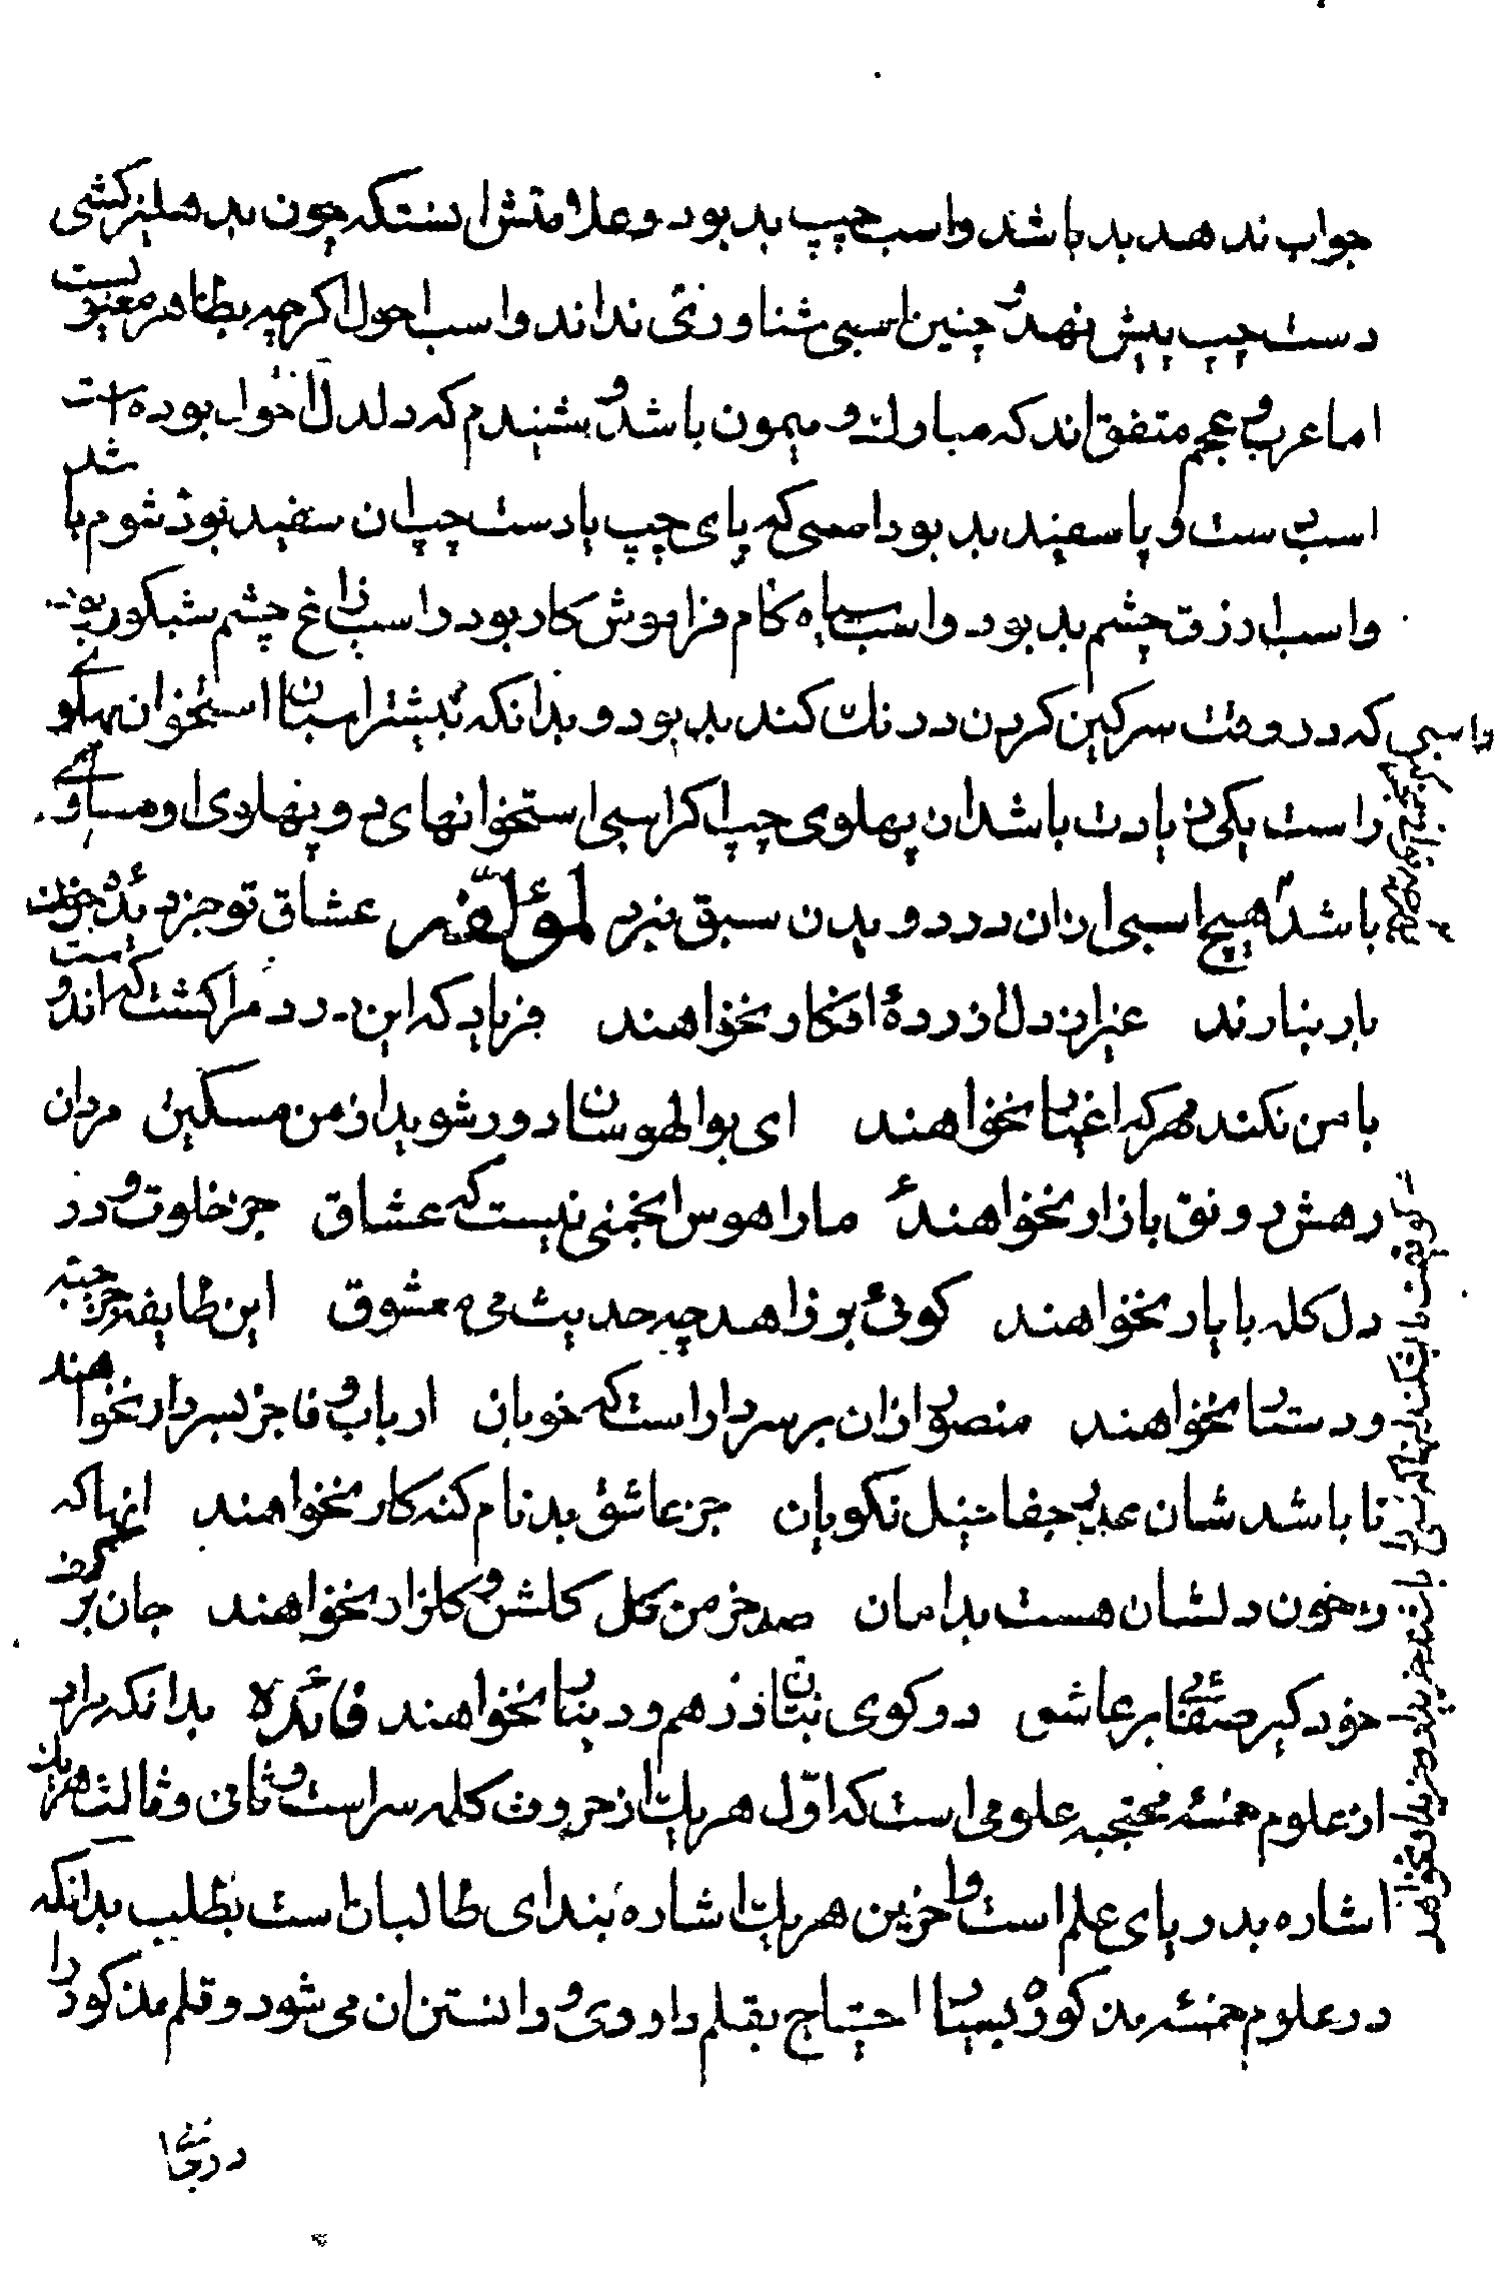 جواب ندهد بد باشد و اسب چپ بد بود و علامتش انستکه چون بدهلیز کشی
دست چپ پیش نهد و چنین اسبی شناوری نداند و اسب احول اکرچه بظاهر معیوبست
اما عرب و عجم متفق اند که مبارک و میمون باشد و شنیدم که دلدل احول بوده است
اسب دست و پا سفید بد بود اسبی که پای چپ یا دست چپ ان سفید بود شوم باشد
و اسب ازرق چشم بد بود و اسب سیاه کام فراموش کار بود و اسب زاغ چشم شبکور بود
و اسبی که در وقت سرکین کردن درنک کند بد بود و بدانکه بیشتر اسبان را استخوان پهلوی
راست یکی زیادت باشد از پهلوی چپ اکر اسبی استخوانهای دو پهلوی او مساوی
باشد هیچ اسبی از ان در دویدن سبق نبرد لمؤلفه عشاق تو جز دیده خونبار نیارند
غیر از دل ازرده افکار نخواهند فریاد که این درد مرا کشت که اندوست
با من نکند مهر که اغیار نخواهند ای بوالهوسان دور شوید از من مسکین مردان
رهش رونق بازار نخواهند ما را هوس انجمنی نیست که عشاق جز خلوت و در
دل کله با یار نخواهند کوئی بر زاهد چه حدیث می و معشوق این طایفه جز جبه
و دستار نخواهند منصور از ان بر سر دار است که خوبان ارباب وفا جز بسر دار نخواهند
تا باشد شان عذر جفا خیل نکویان جز عاشق بدنام کنه کار نخواهند انها که
ز خون دلشان هست بدامان صد خرمن کل کلشن و کلزار نخواهند جان بر کف
خود کیر صفائی بر عاشق در کوی بتان درهم و دینار نخواهند فائده بدانکه مراد
از علوم خمسه محتجبه علومی است که اول هر یک از حروف کله سر است و ثانی و ثالث هر یک
اشاره بدریای علم است و اخرین هر یک اشاره بندای طالبان است بطلب بدانکه
در علوم خمسه مذکوره بسیار احتیاج بقلم داودی و دانستن ان می شود و قلم مذکور را
در اینجا